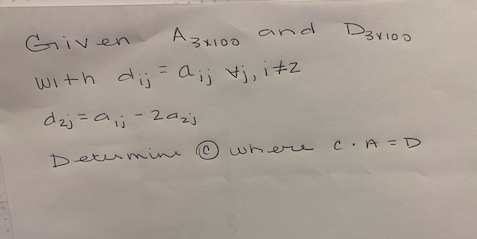 Given A₃ₓ₁₀₀ and D₃ₓ₁₀₀
with dᵢⱼ = aᵢⱼ ∀j, i≠2
d₂ⱼ = a₁ⱼ - 2a₂ⱼ
Determine Ⓒ where C · A = D